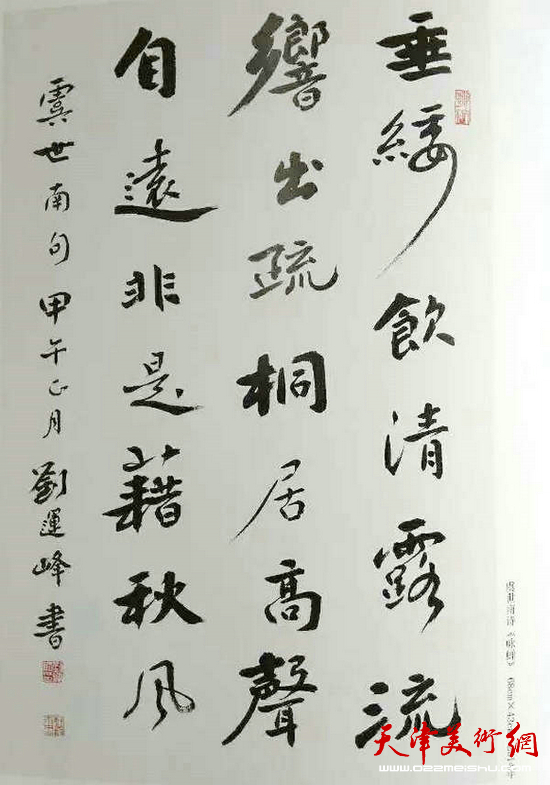 垂緌飲清露流
響出疏桐居高聲
自遠非是藉秋風
虞世南句 甲午正月 劉運峰書
虞世南诗《咏蝉》 68cm×43cm
天津美術網
www.022meishu.com